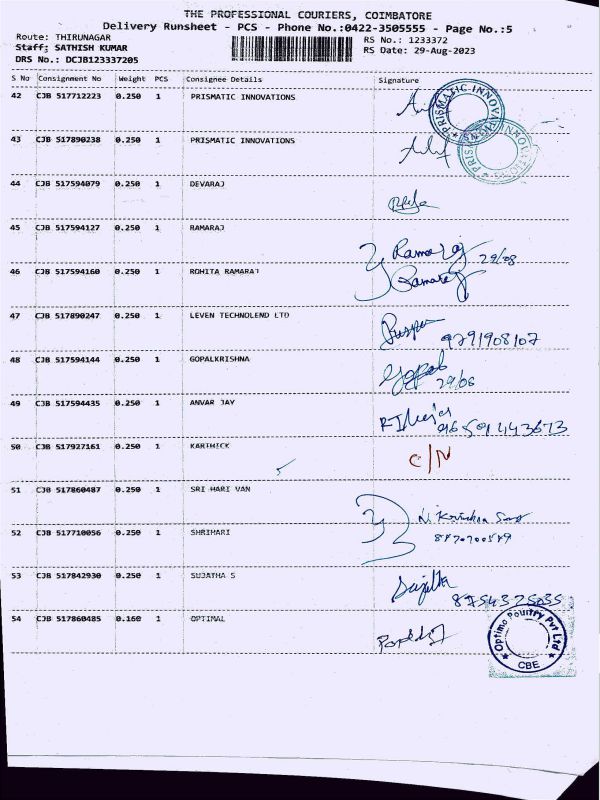 THE PROFESSIONAL COURIERS, COIMBATORE
Delivery Runsheet - PCS - Phone No.:0422-3505555 - Page No.:5
Route: THIRUNAGAR
RS No.: 1233372
Staff: SATHISH KUMAR
RS Date: 29-Aug-2023
DRS No.: DCJB123337205
S No Consignment No Weight PCS Consignee Details Signature
42 CJB 517712223 0.250 1 PRISMATIC INNOVATIONS
PRISMATIC INNOVATIONS
43 CJB 517890238 0.250 1 PRISMATIC INNOVATIONS
PRISMATIC INNOVATIONS
44 CJB 517594079 0.250 1 DEVARAJ
45 CJB 517594127 0.250 1 RAMARAJ
Ramaraj 29/08
46 CJB 517594160 0.250 1 ROHITA RAMARAJ
Ramaraj
47 CJB 517890247 0.250 1 LEVEN TECHNOLEND LTD
9791908107
48 CJB 517594144 0.250 1 GOPALKRISHNA
Gopal
29/08
49 CJB 517594435 0.250 1 ANVAR JAY
50 CJB 517927161 0.250 1 KARTHICK
C/N
51 CJB 517860487 0.250 1 SRI HARI VAN
52 CJB 517710056 0.250 1 SHRIHARI
53 CJB 517842930 0.250 1 SUJATHA S
Sujatha
8754375035
54 CJB 517860485 0.160 1 OPTIMAL
Optimo Poultry Pvt Ltd
CBE